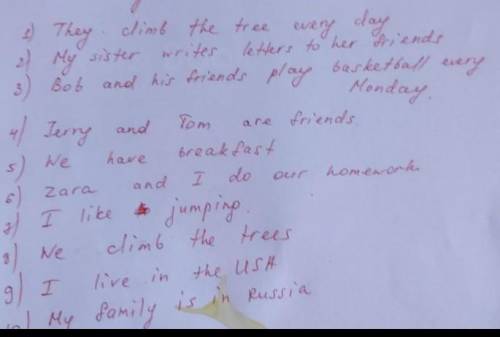 1) They climb the tree every day
2) My sister writes letters to her friends
3) Bob and his friends play basketball every
Monday.
4) Jerry and Tom are friends.
5) We have breakfast
6) Zara and I do our homework.
7) I like jumping.
8) We climb the trees
9) I live in the USA
10) My family is in Russia